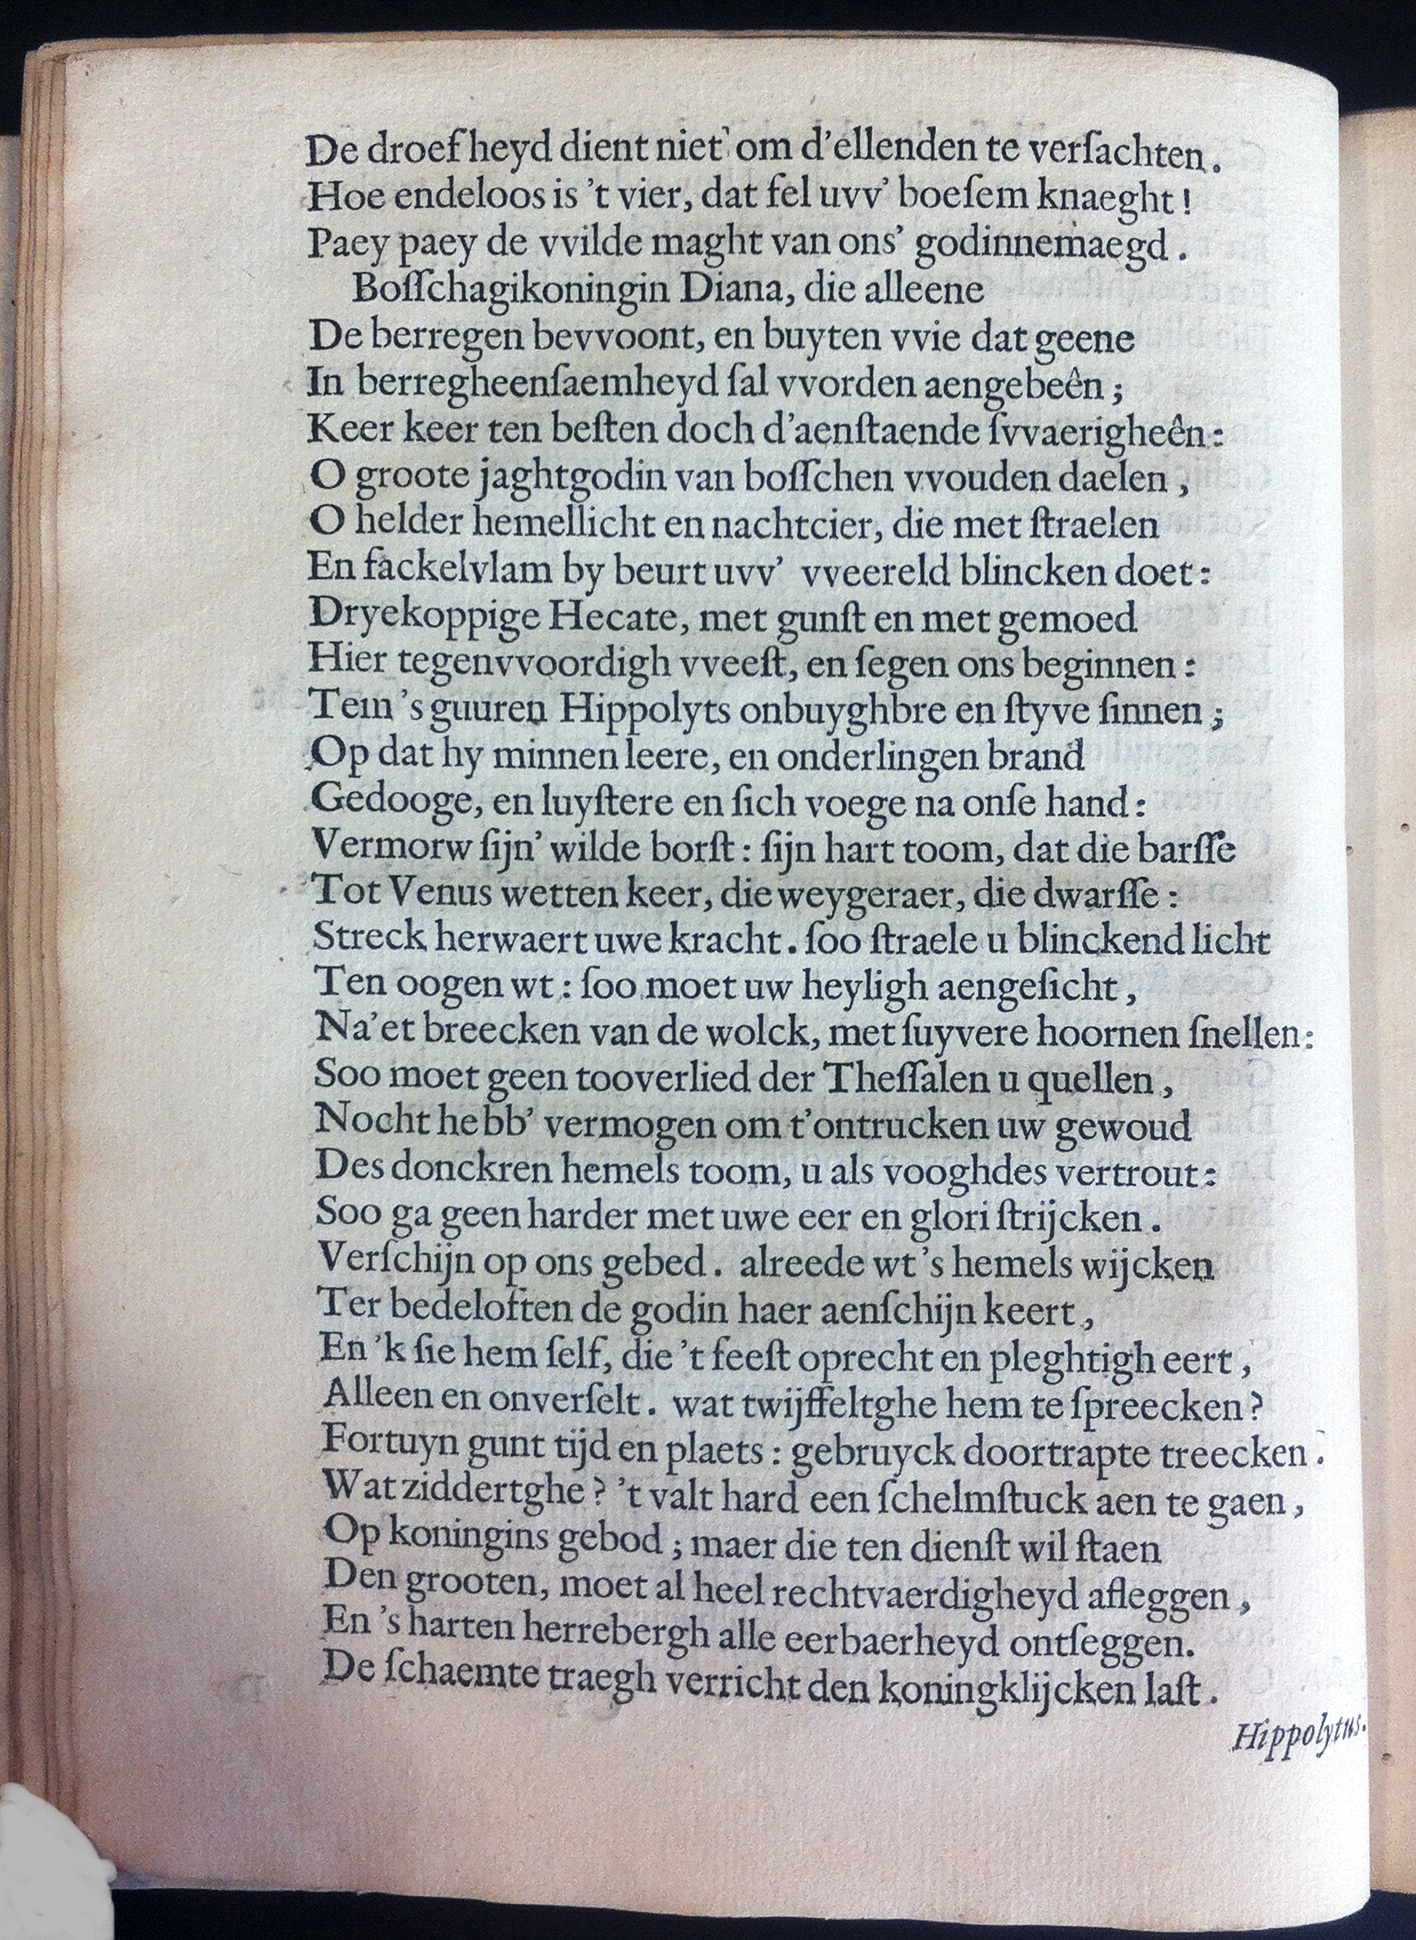 De droefheyd dient niet om d'ellenden te verſachten.
Hoe endeloos is 't vier, dat fel uvv' boeſem knaeght!
Paey paey de vvilde maght van ons' godinnemaegd.
Boſſchagikoningin Diana, die alleene
De berregen bevvoont, en buyten vvie dat geene
In berregheenſaemheyd ſal vvorden aengebeên;
Keer keer ten beſten doch d'aenſtaende ſvvaerigheên:
O groote jaghtgodin van boſſchen vvouden daelen,
O helder hemellicht en nachtcier, die met ſtraelen
En fackelvlam by beurt uvv' vveereld blincken doet:
Dryekoppige Hecate, met gunſt en met gemoed
Hier tegenvvoordigh vveeſt, en ſegen ons beginnen:
Tem 's guuren Hippolyts onbuyghbre en ſtyve ſinnen;
Op dat hy minnen leere, en onderlingen brand
Gedooge, en luyſtere en ſich voege na onſe hand:
Vermorw ſijn' wilde borſt: ſijn hart toom, dat die barſſe
Tot Venus wetten keer, die weygeraer, die dwarſſe:
Streck herwaert uwe kracht. ſoo ſtraele u blinckend licht
Ten oogen wt: ſoo moet uw heyligh aengeſicht,
Na'et breecken van de wolck, met ſuyvere hoornen ſnellen:
Soo moet geen tooverlied der Theſſalen u quellen,
Nocht hebb' vermogen om t'ontrucken uw gewoud
Des donckren hemels toom, u als vooghdes vertrout:
Soo ga geen harder met uwe eer en glori ſtrijcken.
Verſchijn op ons gebed. alreede wt 's hemels wijcken
Ter bedeloften de godin haer aenſchijn keert,
En 'k ſie hem ſelf, die 't feeſt oprecht en pleghtigh eert,
Alleen en onverſelt. wat twijffeltghe hem te ſpreecken?
Fortuyn gunt tijd en plaets: gebruyck doortrapte treecken.
Wat ziddertghe? 't valt hard een ſchelmſtuck aen te gaen,
Op koningins gebod; maer die ten dienſt wil ſtaen
Den grooten, moet al heel rechtvaerdigheyd afleggen,
En 's harten herrebergh alle eerbaerheyd ontſeggen.
De ſchaemte traegh verricht den koningklijcken laſt.
Hippolytus.